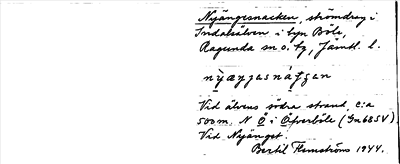 Nyängesnacken, strömdrag i
Indalsälven i byn Böle,
Ragunda sn o. tg, Jämtl. l.
Vid älvens södra strand, c:a
500 m. N Ö i Överböle (Gu 6854)
Vid Nyänget.
Bertil Flemström 1944.